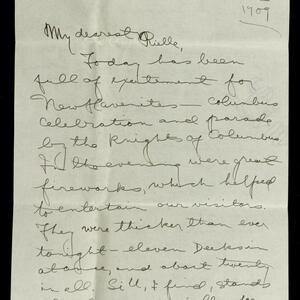 1909
My dearest Rille,
Today has been
full of excitement for
New Havenites - Columbus
Celebration and parade
by the Knights of Columbus
In the evening were great
fireworks, which helped
to entertain our visitors.
They were thicker than ever
tonight - eleven Deeks in
at once, and about twenty
in all. Sill, I find, stands